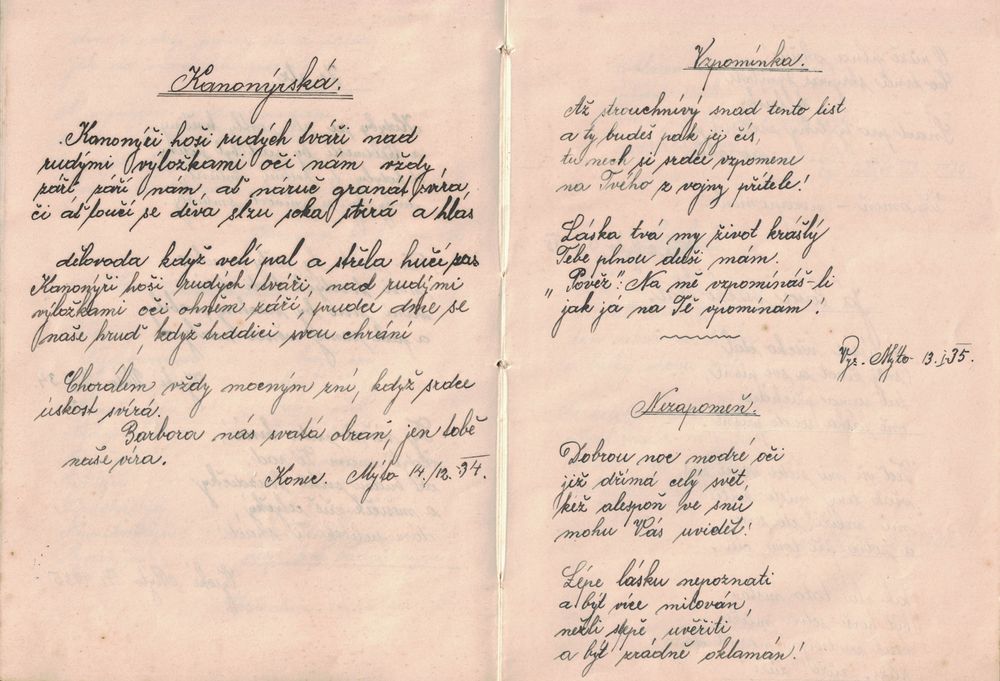 Kanonýrská.
Kanonýři hoši rudých tváři nad
rudými výložkami oči nám vždy
září září nám, ať naruč granát svíra,
či ať loučí se děva slzu soka stírá a hlas
dělovoda když velí pal a střela hučí zas
Kanonýři hoši rudých tváři, nad rudými
výložkami oči ohněm záři, prudce dme se
naše hruď, když srdcici svou chrání
Chorálem vždy mocným zní, když srdce
úskost svírá.
Barbora nás svatá obraň, jen tobě
naše víra.
Konec. Mýto 14./12. 34.
Vzpomínka.
Až strouchnivý snad tento list
a ty budeš pak jej čís,
tu nech si srdce vzpomene
na Tvého z vojny přítele!
Láska tvá my život krášlý
Tebe plnou duši mám.
„Pověz": Na mě vzpomínáš-li
jak já na Tě vpomínám!
Vys. Mýto 13.I.35.
Nezapomeň.
Dobrou noc modré oči
již dřímá celý svět,
kéž alespoň ve snů
mohu Vás uvidět!
Lépe lásku nepoznati
a být více milován,
nežli slepě uvěřiti
a být zrádně oklamán!